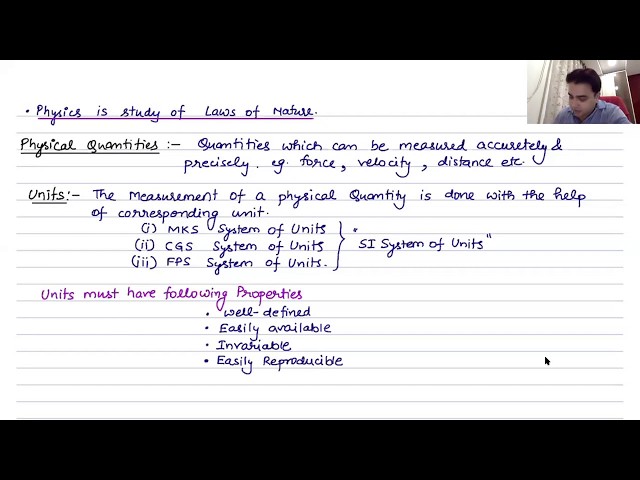 • Physics is study of Laws of Nature.
Physical Quantities :- Quantities which can be measured accuretely &
precisely. eg. force, velocity, distance etc.
Units :- The measurement of a physical Quantity is done with the help
of corresponding unit.
(i) MKS System of Units
(ii) CGS System of Units
(iii) FPS System of Units.
" SI System of Units"
Units must have following Properties
• well-defined
• Easily available
• Invariable
• Easily Reproducible